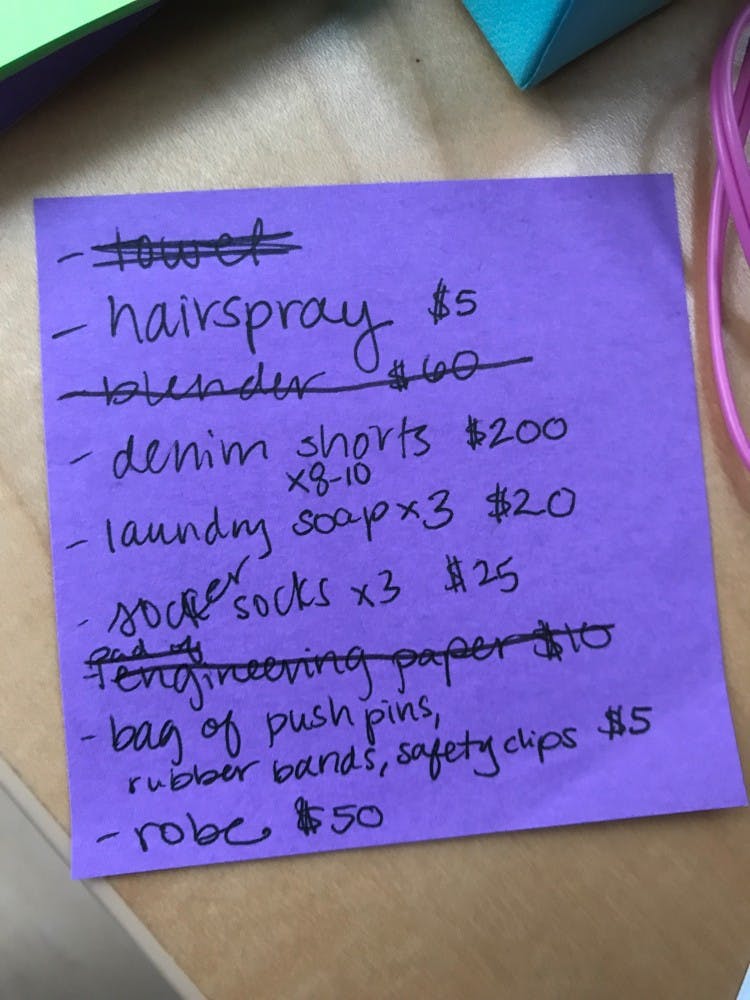 - towel
- hairspray $5
- blender $60
- denim shorts $200
x8-10
- laundry soap x3 $20
- soccer socks x3 $25
pad of
- engineering paper $10
- bag of push pins,
rubber bands, safety clips $5
- robe $50